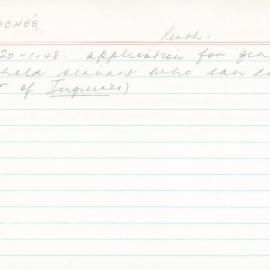 OCHÉE
Perth.
20-1-48. application for gen
hold servant who can
r of Inquiries)